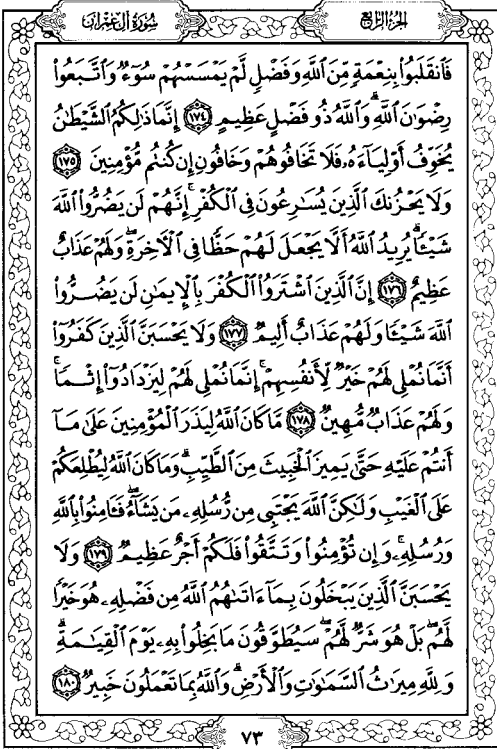 سُورَةُ آلِ عِمْرَانَ
الجزء الرابع
فَٱنقَلَبُوا۟ بِنِعْمَةٍ مِّنَ ٱللَّهِ وَفَضْلٍ لَّمْ يَمْسَسْهُمْ سُوٓءٌ وَٱتَّبَعُوا۟
رِضْوَٰنَ ٱللَّهِ ۗ وَٱللَّهُ ذُو فَضْلٍ عَظِيمٍ ١٧٤ إِنَّمَا ذَٰلِكُمُ ٱلشَّيْطَٰنُ
يُخَوِّفُ أَوْلِيَآءَهُۥ فَلَا تَخَافُوهُمْ وَخَافُونِ إِن كُنتُم مُّؤْمِنِينَ ١٧٥
وَلَا يَحْزُنكَ ٱلَّذِينَ يُسَٰرِعُونَ فِى ٱلْكُفْرِ ۚ إِنَّهُمْ لَن يَضُرُّوا۟ ٱللَّهَ
شَيْـًٔا ۗ يُرِيدُ ٱللَّهُ أَلَّا يَجْعَلَ لَهُمْ حَظًّا فِى ٱلْءَاخِرَةِ ۖ وَلَهُمْ عَذَابٌ
عَظِيمٌ ١٧٦ إِنَّ ٱلَّذِينَ ٱشْتَرَوُا۟ ٱلْكُفْرَ بِٱلْإِيمَٰنِ لَن يَضُرُّوا۟
ٱللَّهَ شَيْـًٔا وَلَهُمْ عَذَابٌ أَلِيمٌ ١٧٧ وَلَا يَحْسَبَنَّ ٱلَّذِينَ كَفَرُوٓا۟
أَنَّمَا نُمْلِى لَهُمْ خَيْرٌ لِّأَنفُسِهِمْ ۚ إِنَّمَا نُمْلِى لَهُمْ لِيَزْدَادُوٓا۟ إِثْمًا ۚ
وَلَهُمْ عَذَابٌ مُّهِينٌ ١٧٨ مَّا كَانَ ٱللَّهُ لِيَذَرَ ٱلْمُؤْمِنِينَ عَلَىٰ مَآ
أَنتُمْ عَلَيْهِ حَتَّىٰ يَمِيزَ ٱلْخَبِيثَ مِنَ ٱلطَّيِّبِ ۗ وَمَا كَانَ ٱللَّهُ لِيُطْلِعَكُمْ
عَلَى ٱلْغَيْبِ وَلَٰكِنَّ ٱللَّهَ يَجْتَبِى مِن رُّسُلِهِۦ مَن يَشَآءُ ۖ فَـَٔامِنُوا۟ بِٱللَّهِ
وَرُسُلِهِۦ ۚ وَإِن تُؤْمِنُوا۟ وَتَتَّقُوا۟ فَلَكُمْ أَجْرٌ عَظِيمٌ ١٧٩ وَلَا
يَحْسَبَنَّ ٱلَّذِينَ يَبْخَلُونَ بِمَآ ءَاتَىٰهُمُ ٱللَّهُ مِن فَضْلِهِۦ هُوَ خَيْرًا
لَّهُم ۖ بَلْ هُوَ شَرٌّ لَّهُمْ ۖ سَيُطَوَّقُونَ مَا بَخِلُوا۟ بِهِۦ يَوْمَ ٱلْقِيَٰمَةِ ۗ
وَلِلَّهِ مِيرَٰثُ ٱلسَّمَٰوَٰتِ وَٱلْأَرْضِ ۗ وَٱللَّهُ بِمَا تَعْمَلُونَ خَبِيرٌ ١٨٠
٧٣